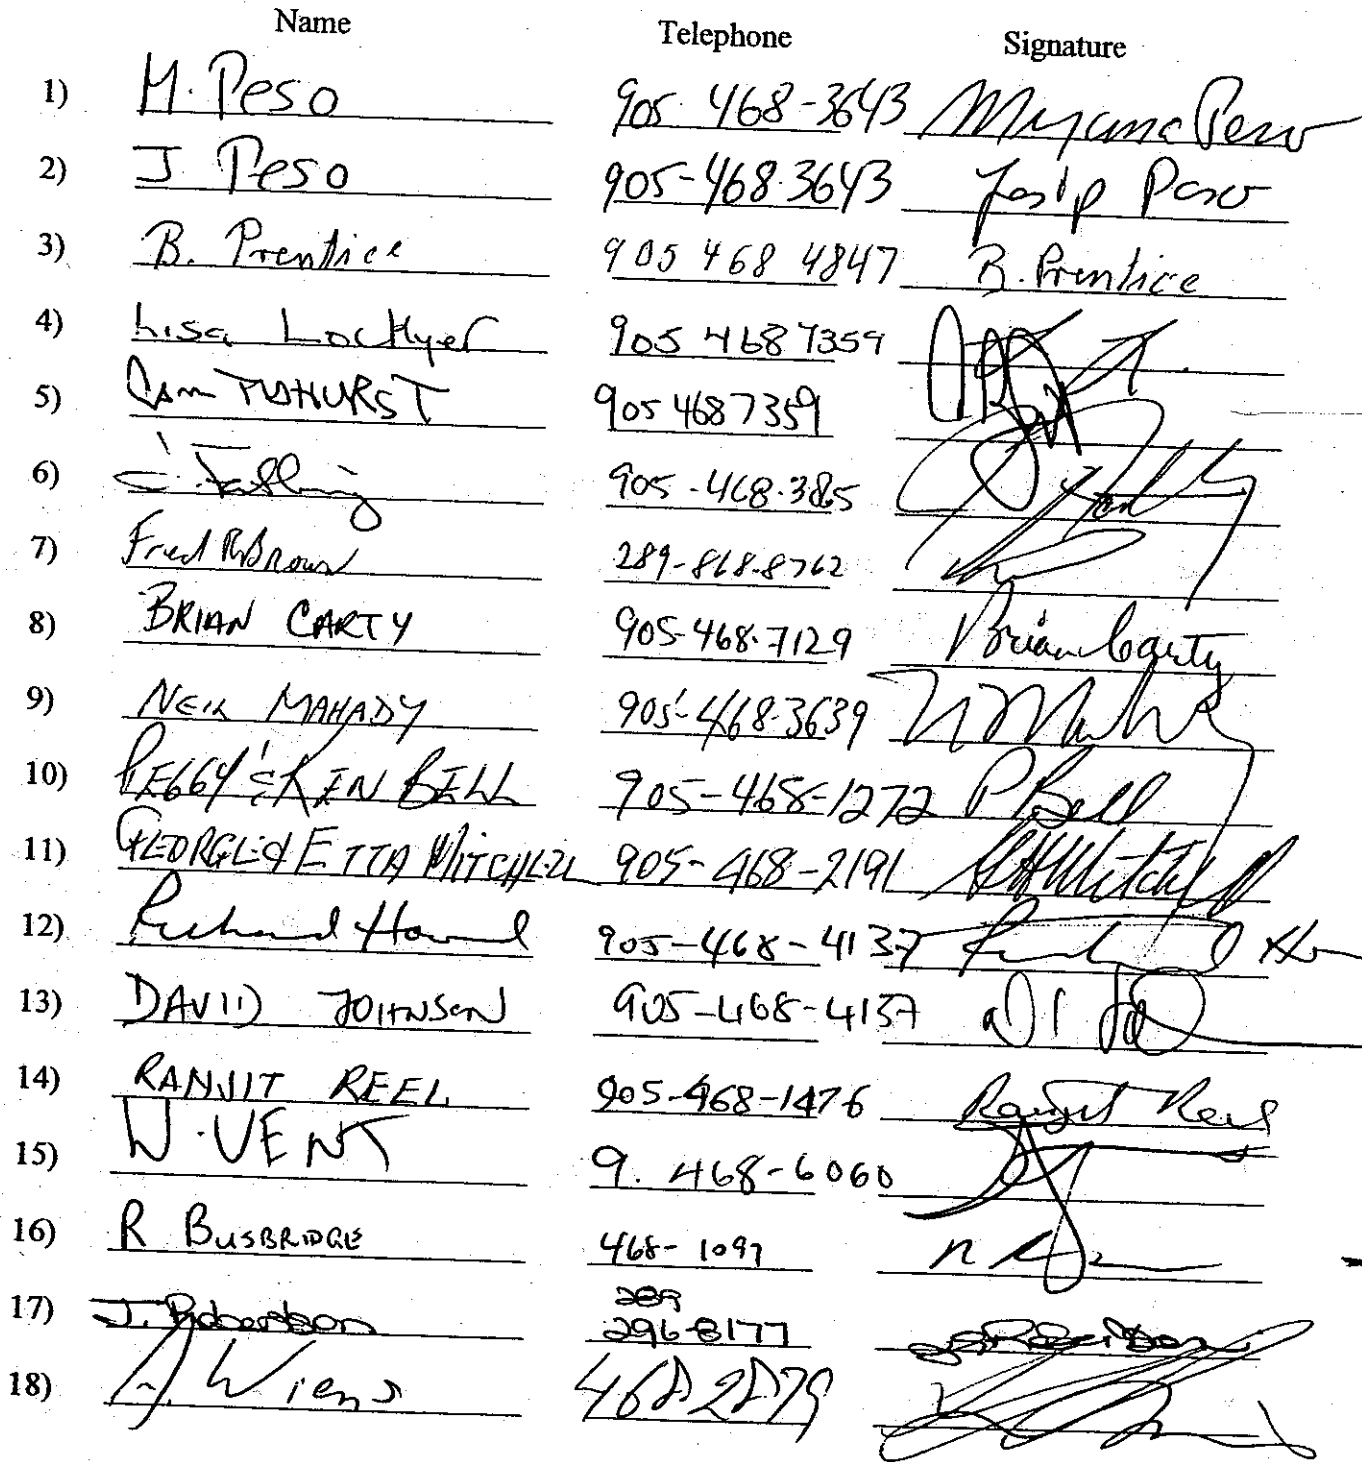 Name Telephone Signature
1) M. Peso 905 468-3643 Miryana Peso
2) J Peso 905-468-3643 Josip Peso
3) B. Prentice 905 468 4847 B. Prentice
4) Lisa Lockyer 905 468 7359
5) Cam 905 468 7359
6) 905-468-3885
7) Fred Brown 289-868-8762
8) BRIAN CARTY 905-468-7129 Brian Carty
9) NEIL MAHADY 905-468-3639
10) PEGGY & KEN BELL 905-468-1272 P Bell
11) GEORGE & ETTA MITCHELL 905-468-2191 Mitchell
12) Richard 905-468-4137 Richard
13) DAVID JOHNSON 905-468-4137
14) RANJIT REEL 905-468-1476 Ranjit Reel
15) W. VENT 9. 468-6060
16) R BUSBRIDGE 468-1097
17) J. Robertson 289 296-8177
18) A. Wiens 468 2879